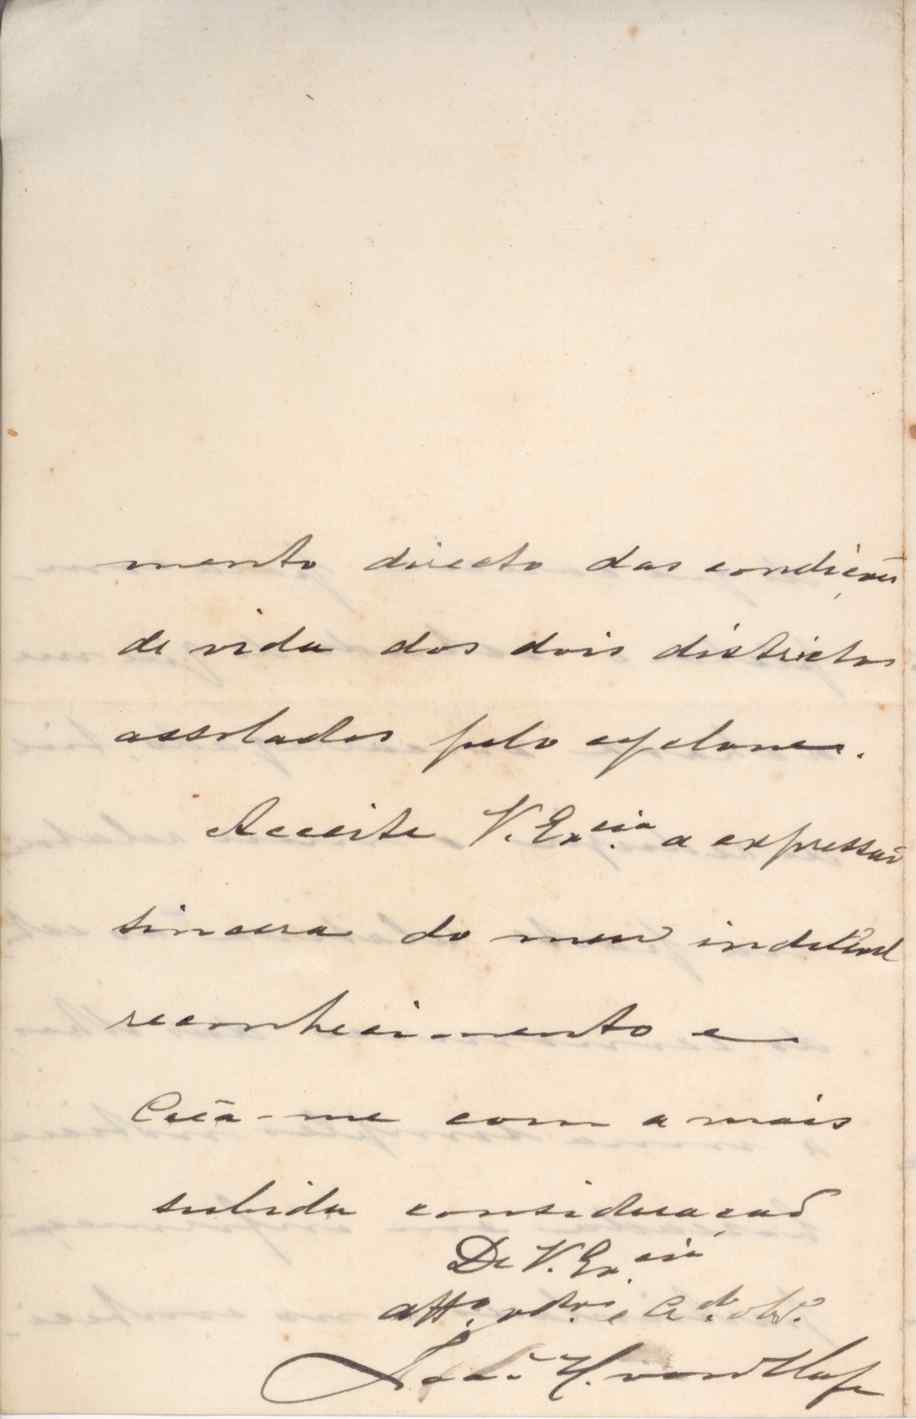 mento directo das condições
de vida dos dois districtos
assolados pelo cyclone.
Acceite V. Ex.cia a expressão
sincera do meu indelevel
reconhecimento e
Creia-me com a mais
subida consideração
De V. Ex.cia
att.o e Cr.do ob.o
João H. von Hafe